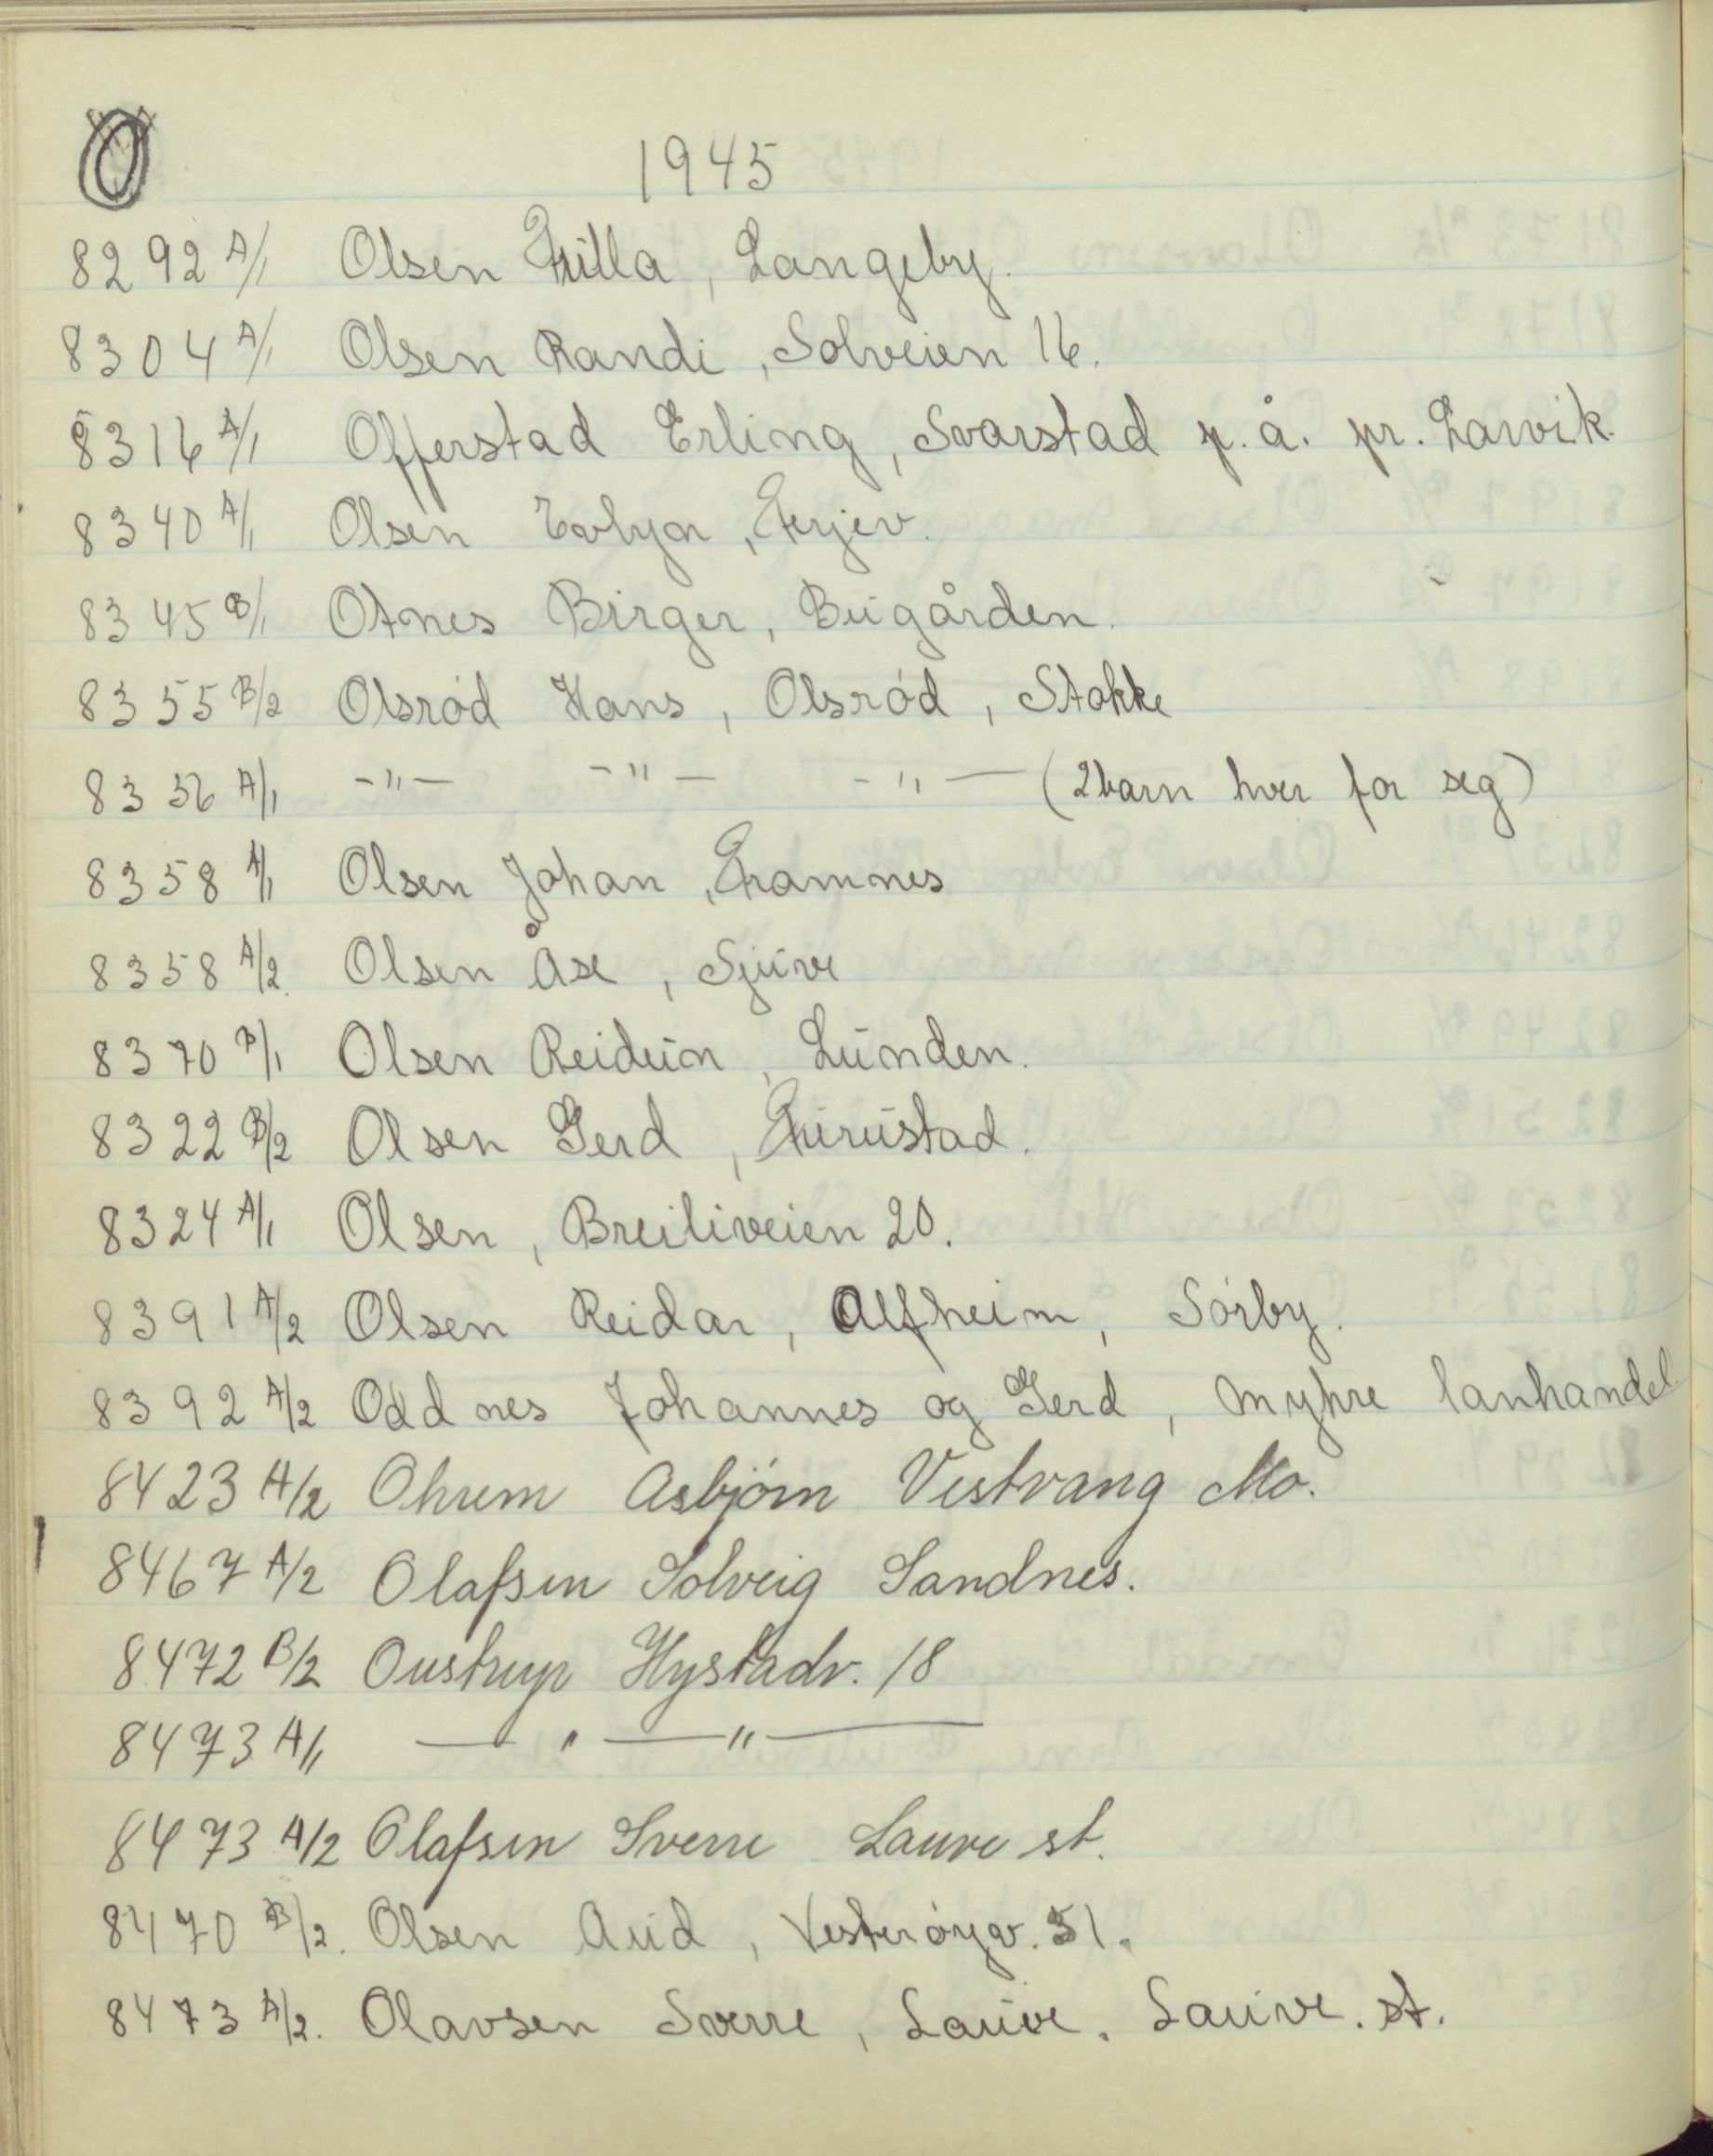 O
1945
8292 A/1 Olsen Trulla, Langeby.
8304 A/1 Olsen Randi, Solveien 16.
8316 A/1 Offerstad Erling, Svarstad p.å. pr. Larvik.
8340 A/1 Olsen Evlyn, Ferjev.
8345 B/1 Otnes Birger, Bugården.
8355 B/2 Olsrød Hans, Olsrød, Stokke
8356 A/1 -"- -"- -"- (2 barn hver for seg)
8358 A/1 Olsen Johan, Framnes
8358 A/2. Olsen Åse, Sjuve
8370 B/1 Olsen Reidun, Lunden.
8322 B/2 Olsen Gerd, Furustad.
8324 A/1 Olsen, Breiliveien 20.
8391 A/2 Olsen Reidar, Alfheim, Sørby.
8392 A/2 Oddnes Johannes og Gerd, Myhre lanhandel
8423 A/2 Ohrem Asbjørn Vestvang Mo.
8467 A/2 Olafsen Solveig Sandnes.
8472 B/2 Oustrup Hystadv. 18
8473 A/1 — " — " —
8473 A/2 Olafsen Sverre Lauve st.
8470 B/2. Olsen Aud, Vesterøyv. 51.
8473 A/2. Olavsen Sverre, Lauve. Lauve. st.